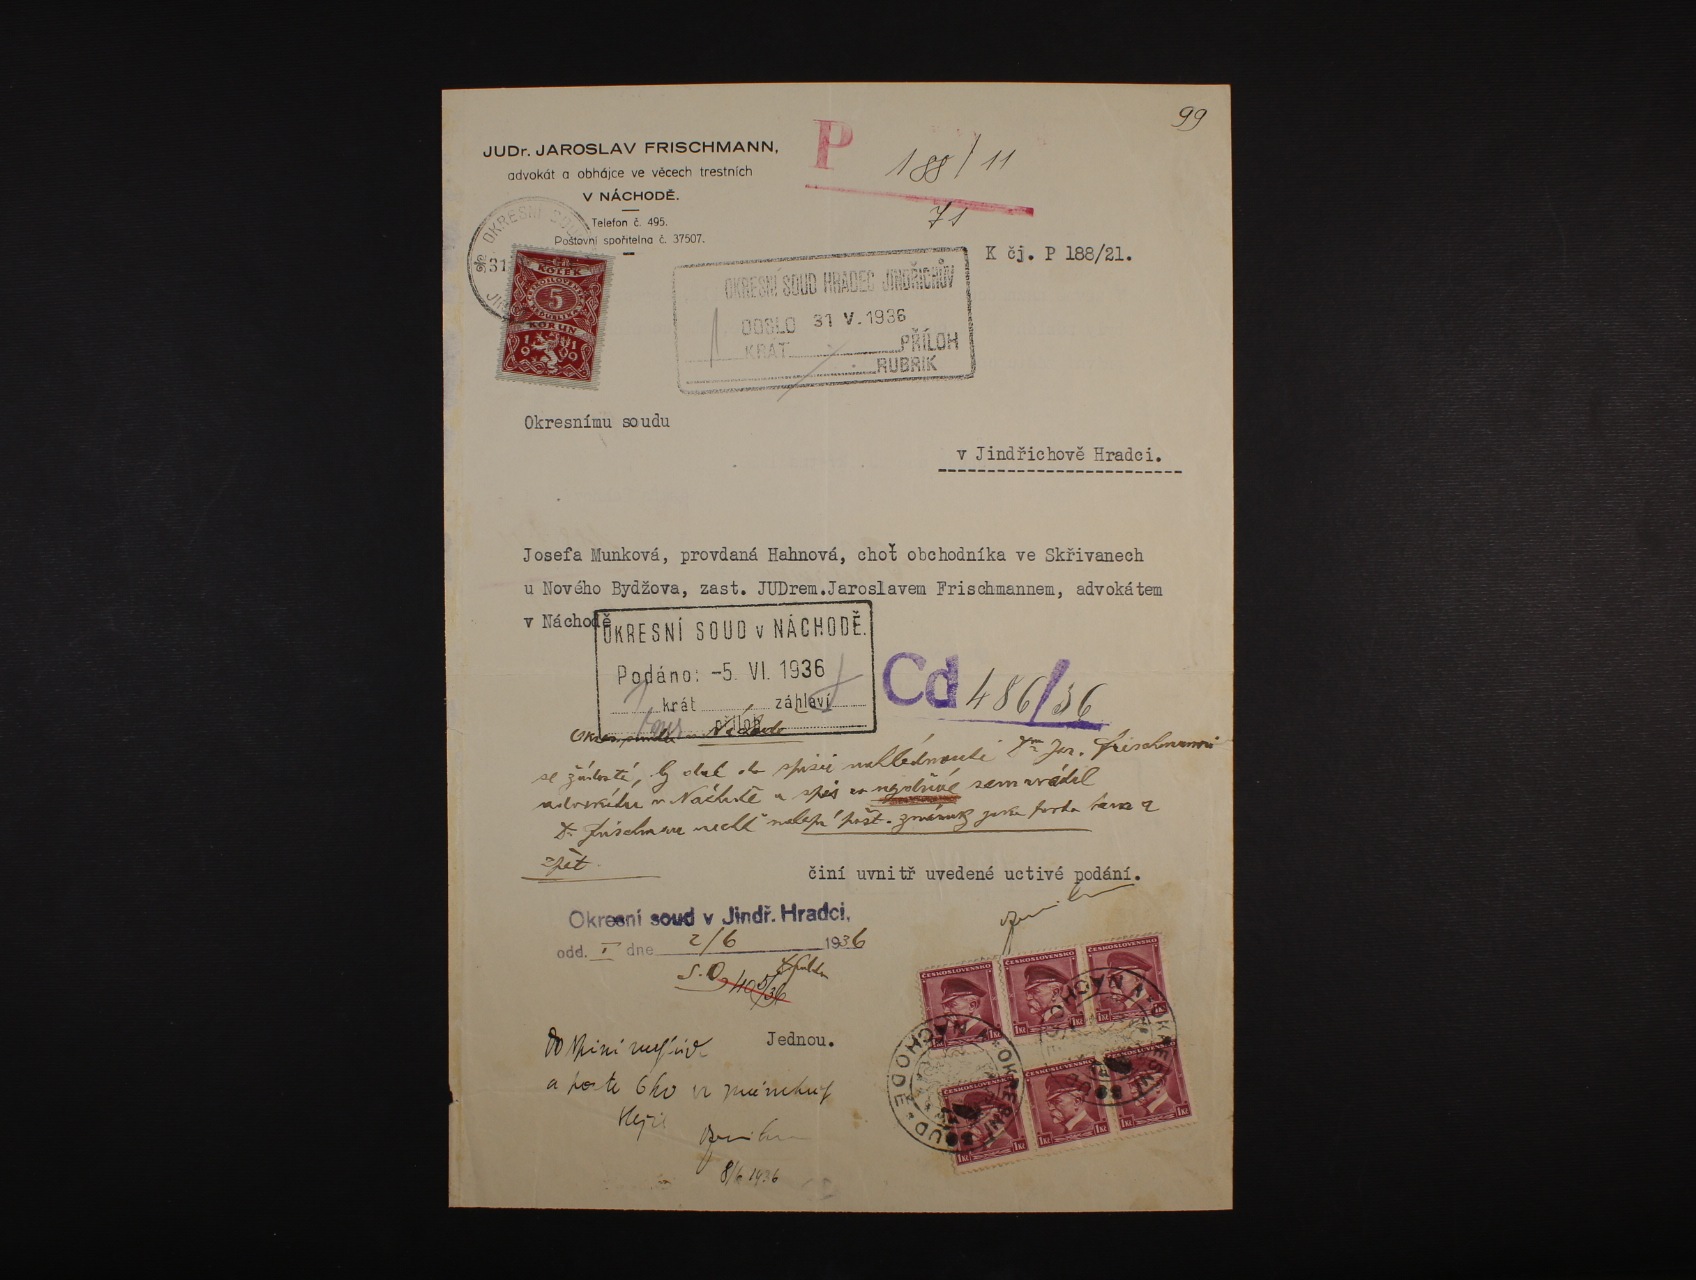 99
JUDr. JAROSLAV FRISCHMANN,
advokát a obhájce ve věcech trestních
V NÁCHODĚ.
Telefon č. 495.
Poštovní spořitelna č. 37507.
P 188/11
71
K čj. P 188/21.
OKRESNÍ SOUD
31
KOLEK
5
KORUN
1919
OKRESNÍ SOUD HRADEC JINDŘICHŮV
DOŠLO 31 V. 1936
KRÁT PŘÍLOH
RUBRIK
Okresnímu soudu
v Jindřichově Hradci.
Josefa Munková, provdaná Hahnová, choť obchodníka ve Skřivanech
u Nového Bydžova, zast. JUDrem.Jaroslavem Frischmannem, advokátem
v Náchodě
OKRESNÍ SOUD v NÁCHODĚ.
Podáno: -5. VI. 1936
krát záhlaví
příloh
Cd 486/36
se žádostí, by dal do spisů nahlédnouti Jar. Frischmannovi
advokátu v Náchodě a spis
Dr Frischmann nechť nalepí pošt. tam a
zpět.
činí uvnitř uvedené uctivé podání.
Okresní soud v Jindř. Hradci,
odd. I dne 2/6 1936
Jednou.
a porto 6 Kč
8/6 1936
ČESKOSLOVENSKO
1 Kč
ČESKOSLOVENSKO
1 Kč
ČESKOSLOVENSKO
1 Kč
ČESKOSLOVENSKO
1 Kč
ČESKOSLOVENSKO
1 Kč
ČESKOSLOVENSKO
1 Kč
OKRESNÍ SOUD V NÁCHODĚ
OKRESNÍ SOUD V NÁCHODĚ